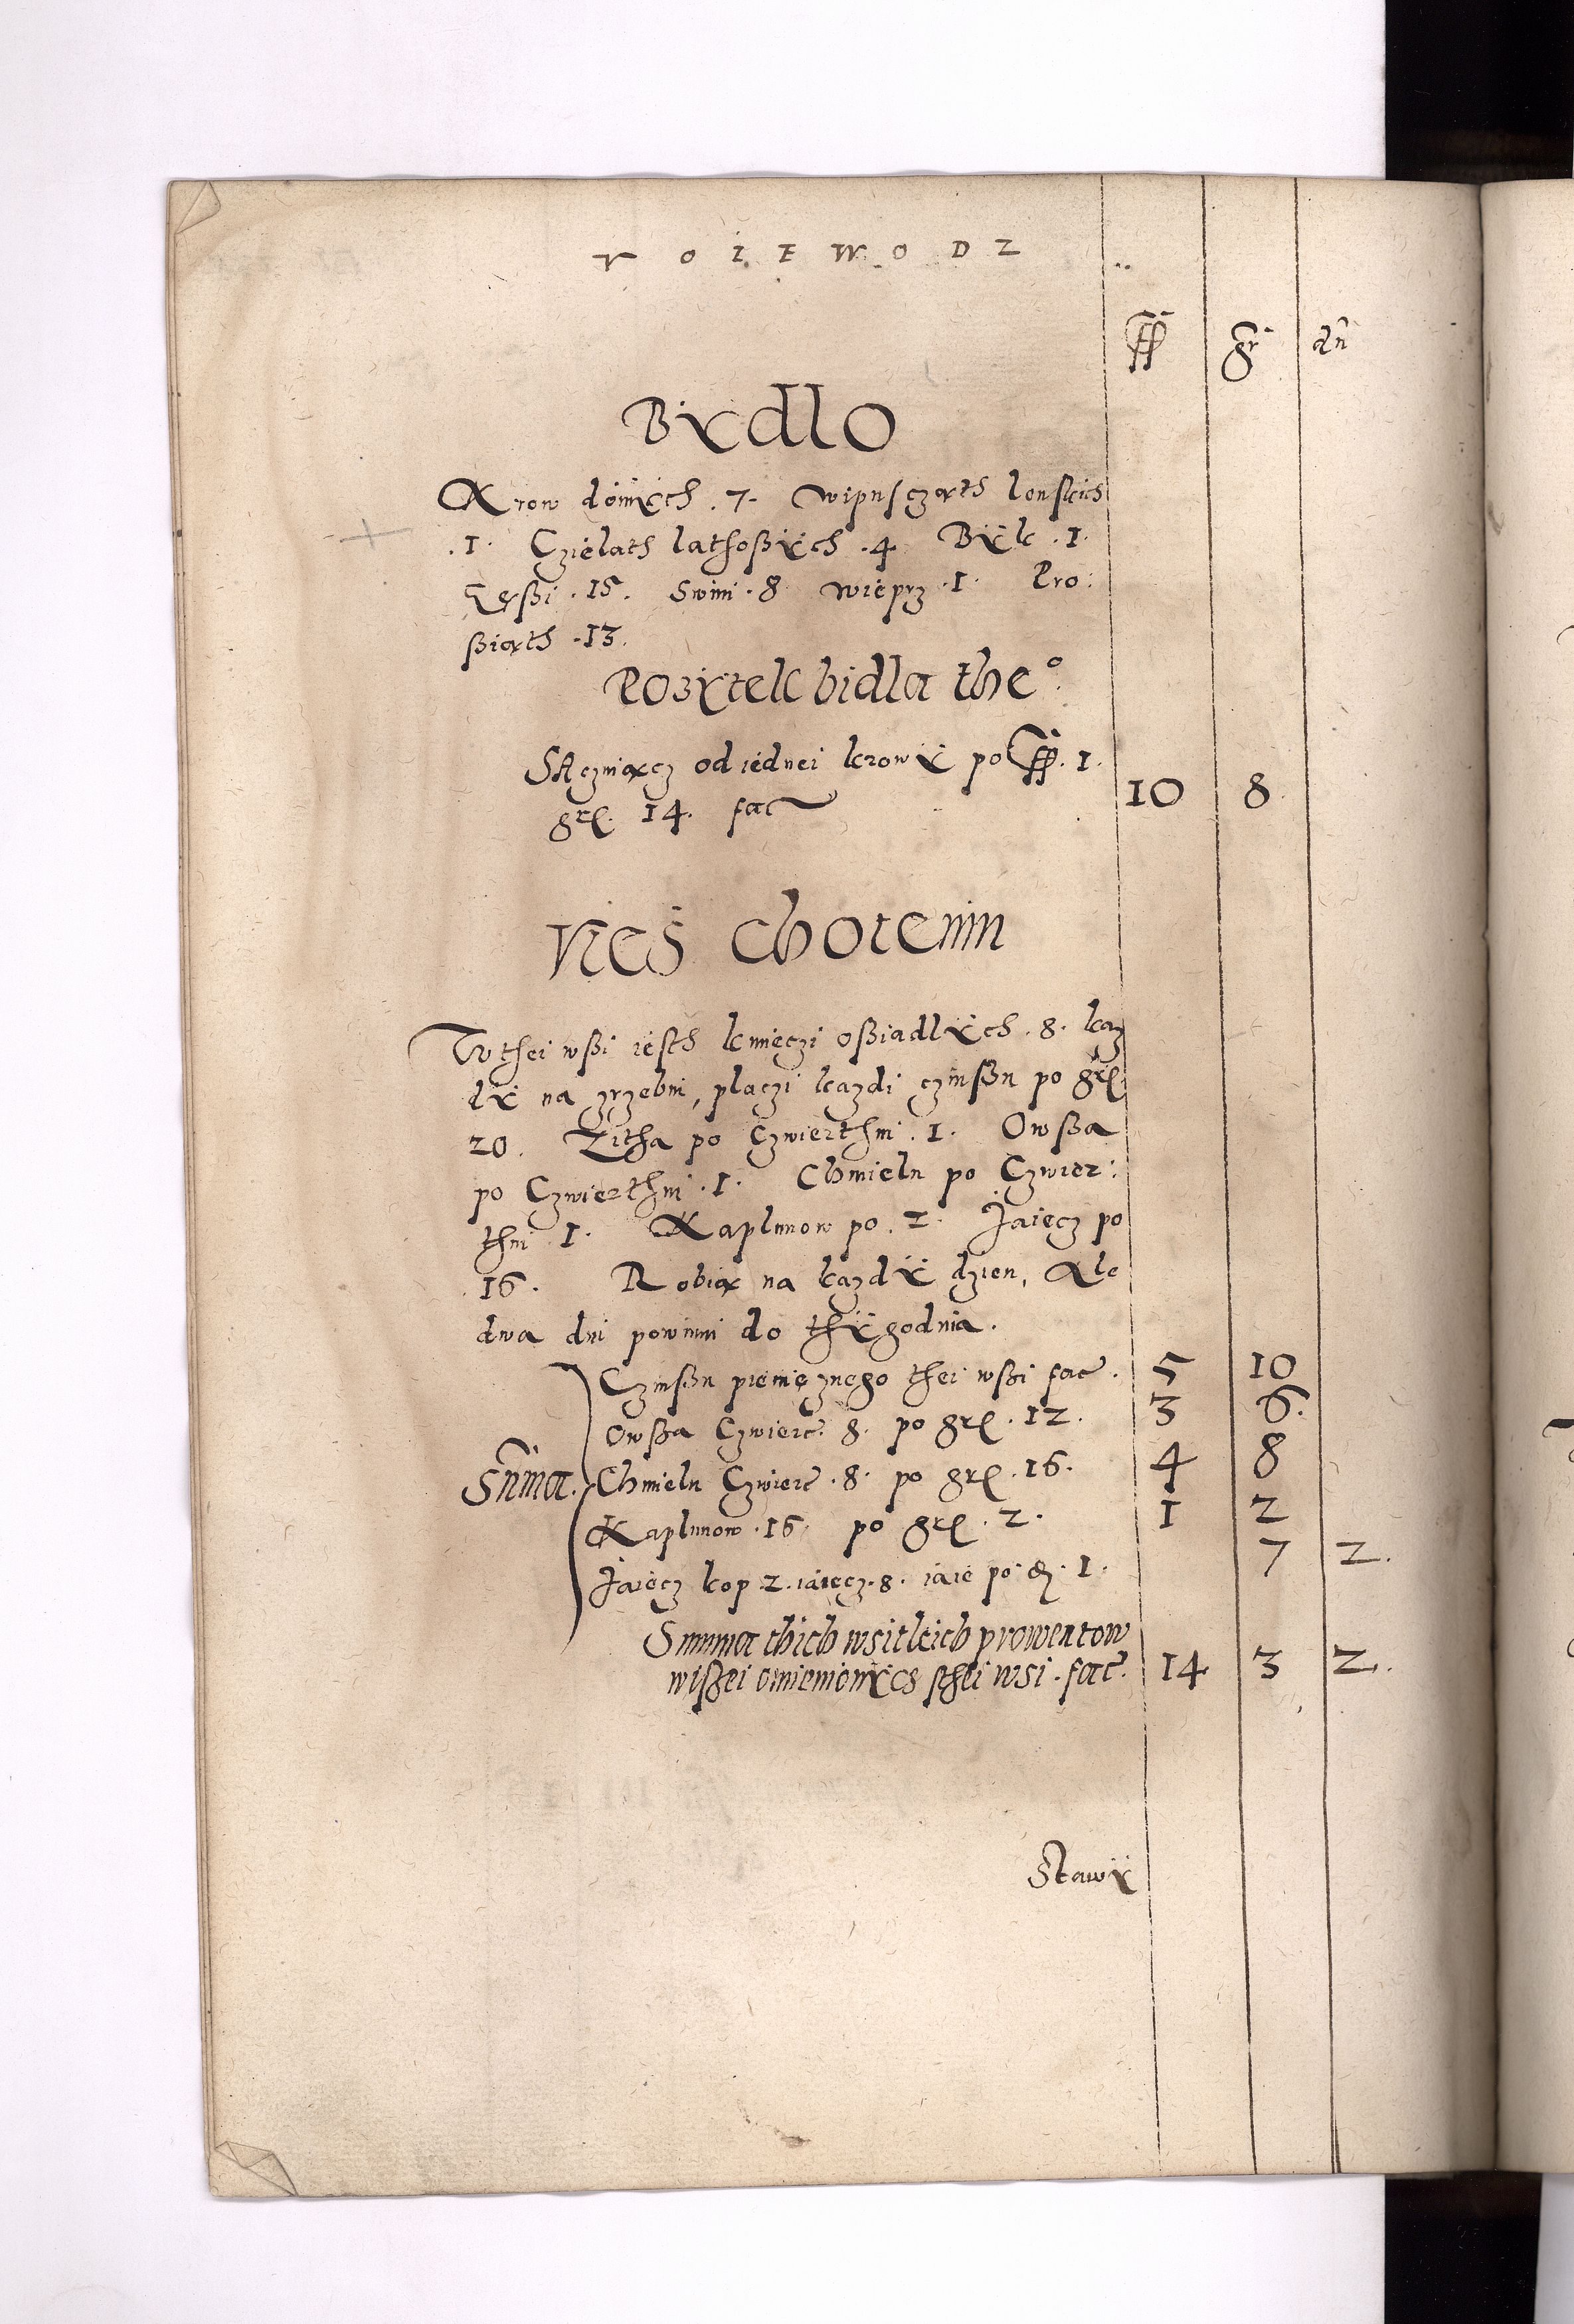 V O I E W O D Z
ff gr dn
Bÿdlo
Krow doinÿch . 7 . wipusczątħ lonskich
. 1 . Czieląth lathoßÿch . 4 Bÿk . 1 .
Gęßi . 15 . Swini . 8 wieprz . 1 . Pro:
ßiąth . 13 .
Pozÿtek bidla the°.
SAczniącz od iednei krowÿ po ff . 1 .
grꝭ . 14 . fac 10 8
VIES Chotenin
W thei wßi iesth kmieczi oßiadlÿch . 8 . kaz
dÿ na zrzebiu, placzi kazdi czinßu po grꝭ
20 . Zitha po Czwierthni . 1 . Owßa
po Czwierthni . 1 . Chmielu po Czwier:
thni 1 . Kaplunow po . 2 . Jaiecz po
16 . Robią na kazdÿ dzien, Ale
dwa dni powinni do thÿgodnia .
Czinßu pienięznego thei wßi fac . 5 10
Owßa Czwierc . 8 . po grꝭ . 12 . 3 6 .
Suma . Chmielu Czwierc . 8 . po grꝭ . 16 . 4 8
Kaplunow . 16 . po grꝭ . 2 . 1 2
Jaiecz kop . 2 . iaiecz . 8 . iaie po . 1 . 7 2 .
Summa thich wsitkich prowentow
wißei omienionÿch sthei wsi . fac . 14 3 2 .
Stawÿ